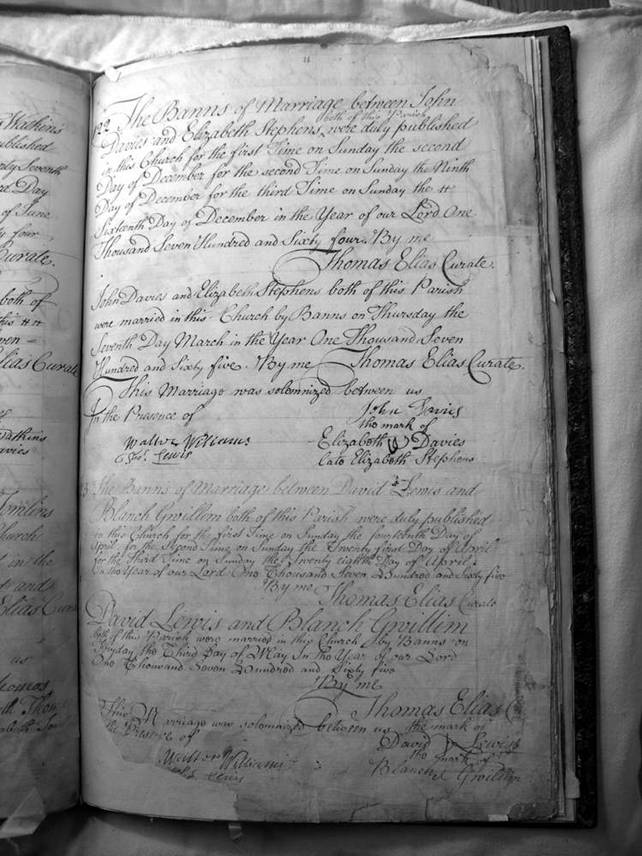 Watkins
published
Seventh
Day
of June
four
Curate.
both of
Elias Curate
Watkins
Davies
Tomlins
Church
in the
and
Elias Curate
us
Thomas
122 The Banns of Marriage between John
both of this Parish
Davies and Elizabeth Stephens, were duly published
in this Church for the first Time on Sunday the second
Day of December for the second Time on Sunday the Ninth
Day of December for the third Time on Sunday the
Sixteenth Day of December in the Year of our Lord One
Thousand Seven Hundred and Sixty four. By me
Thomas Elias Curate.
John Davies and Elizabeth Stephens both of this Parish
were married in this Church by Banns on Thursday the
Seventh Day March in the Year One Thousand Seven
Hundred and Sixty five. By me Thomas Elias Curate.
This Marriage was solemnized between us
In the Presence of
John Davies
the mark of
Walter Williams
Elizabeth Davies
Lewis
late Elizabeth Stephens
3 The Banns of Marriage between David Lewis and
Blanch Gwillem both of this Parish were duly published
in this Church for the first Time on Sunday the fourteenth Day of
April for the Second Time on Sunday the Twenty first Day of April
for the Third Time on Sunday the Twenty eighth Day of April
in the Year of our Lord One Thousand Seven Hundred and Sixty five
By me Thomas Elias Curate
David Lewis and Blanch Gwillem
both of this Parish were married in this Church by Banns on
Fryday the Third Day of May In the Year of our Lord
One Thousand Seven Hundred and Sixty five
By me
Thomas Elias C
This Marriage was solemnized between us
the mark of
the Presence of
David Lewis
the mark of
Walter Williams
Lewis
Blanch Gwillim